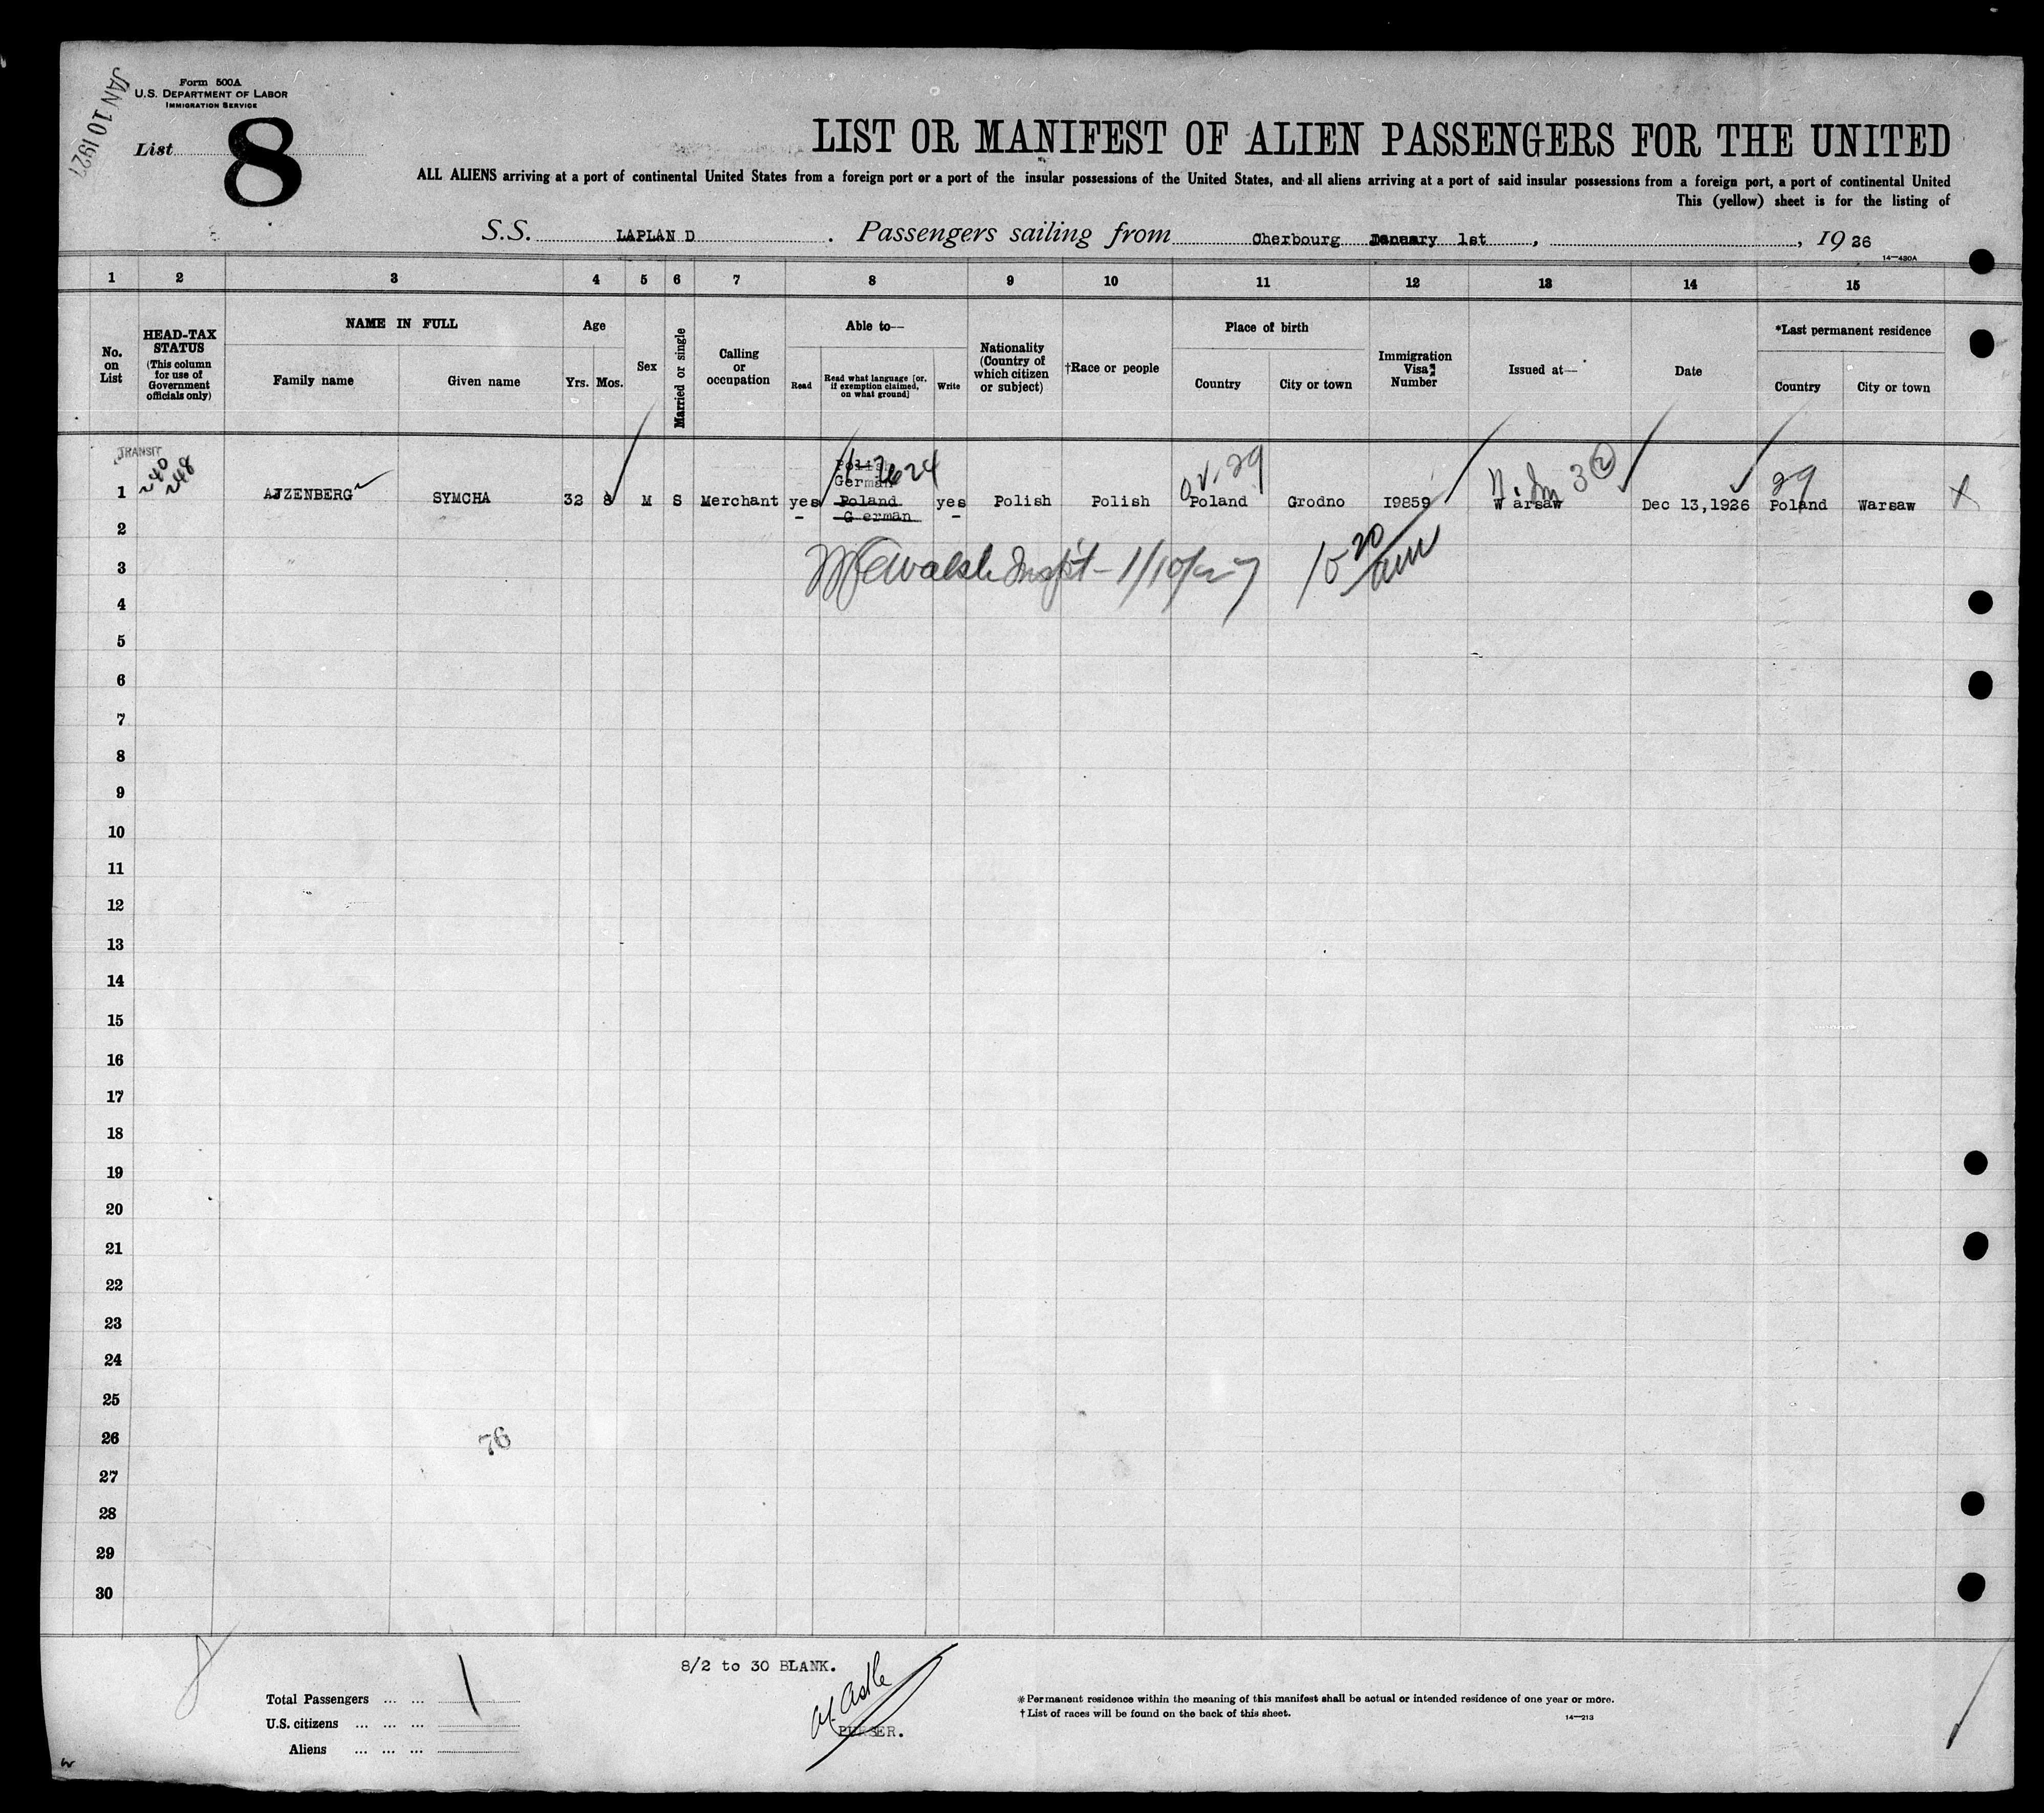 JAN 10 1927
Form 500A
U.S. DEPARTMENT OF LABOR
IMMIGRATION SERVICE
List 8
LIST OR MANIFEST OF ALIEN PASSENGERS FOR THE UNITED
ALL ALIENS arriving at a port of continental United States from a foreign port or a port of the insular possessions of the United States, and all aliens arriving at a port of said insular possessions from a foreign port, a port of continental United
This (yellow) sheet is for the listing of
S.S. LAPLAN D . Passengers sailing from Cherbourg January 1st , , 19 26
14—430A
1 2 3 4 5 6 7 8 9 10 11 12 13 14 15
No. on List
HEAD-TAX STATUS (This column for use of Government officials only)
NAME IN FULL
Family name Given name
Age
Yrs. Mos.
Sex
Married or single
Calling or occupation
Able to—
Read
Read what language [or, if exemption claimed, on what ground]
Write
Nationality (Country of which citizen or subject)
†Race or people
Place of birth
Country City or town
Immigration Visa Number
Issued at—
Date
*Last permanent residence
Country City or town
TRANSIT
Polish
German
1 AJZENBERG SYMCHA 32 8 M S Merchant yes Poland yes Polish Polish Poland Grodno I9859 W arsaw Dec 13,1926 Poland Warsaw
– G erman –
29
29
2
3
Walsh Insp't – 1/10/27 10 20 am
4
5
6
7
8
9
10
11
12
13
14
15
16
17
18
19
20
21
22
23
24
25
26
76
27
28
29
30
8/2 to 30 BLANK.
Total Passengers ... ... 1
U.S. citizens ... ... ...
Aliens ... ... ...
PURSER.
* Permanent residence within the meaning of this manifest shall be actual or intended residence of one year or more.
† List of races will be found on the back of this sheet.
14—213